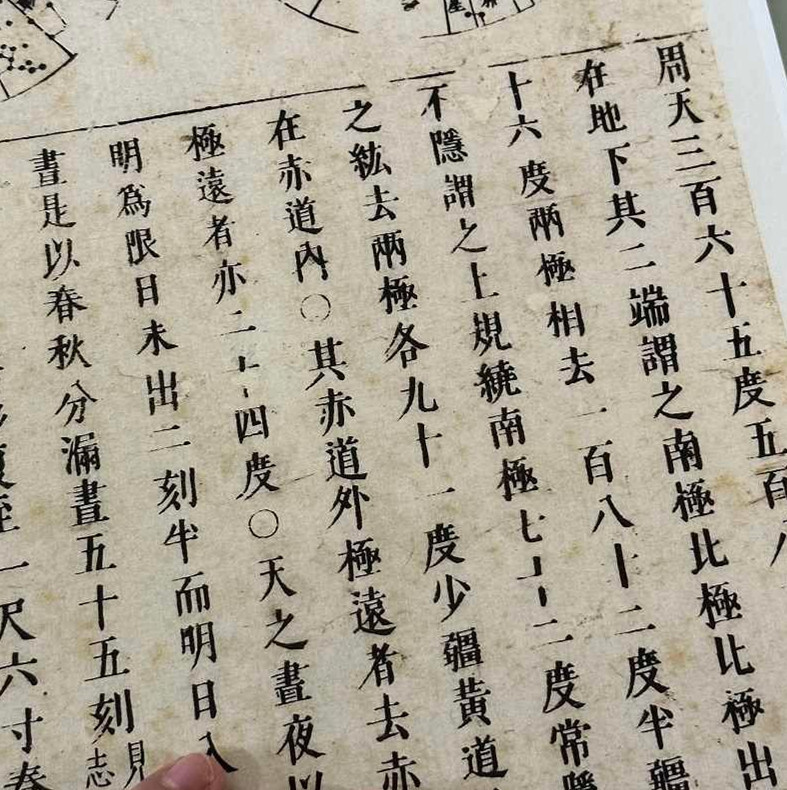 周天三百六十五度五百八
在地下其二端謂之南極比極比極出
十六度兩極相去一百八十二度半疆
不隱謂之上規繞南極七十二度常隱
之紘去兩極各九十一度少疆黃道
在赤道內○其赤道外極遠者去赤
極遠者亦二十四度○天之晝夜以
明為限日未出二刻半而明日入
晝是以春秋分漏晝五十五刻見志
一尺六寸春